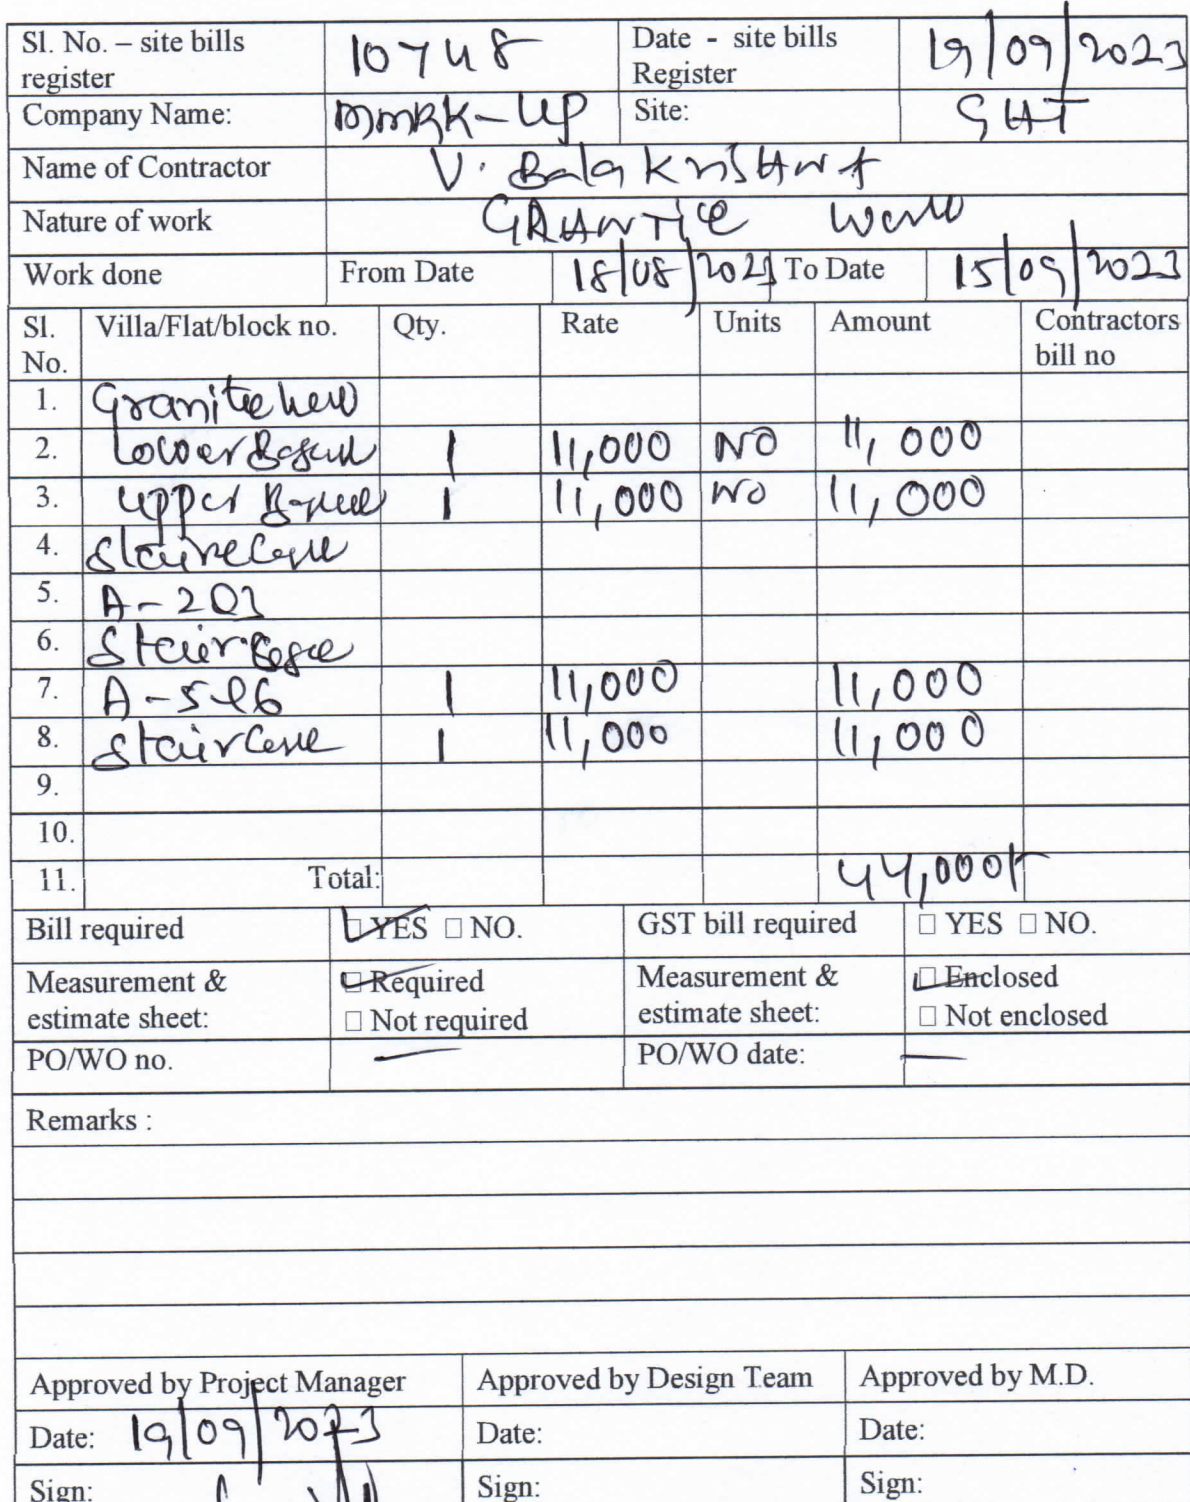 Sl. No. – site bills register 10748 Date - site bills Register 19/09/2023
Company Name: MMRK-UP Site: GHT
Name of Contractor V. Balakrishna
Nature of work GRANTICE Work
Work done From Date 18/08/2023 To Date 15/09/2023
Sl. No. Villa/Flat/block no. Qty. Rate Units Amount Contractors bill no
1. Granite
2. Lower 1 11,000 NO 11,000
3. Upper 1 11,000 NO 11,000
4.
5. A-203
6. Stair
7. A-5 1 11,000 11,000
8. Staircase 1 11,000 11,000
9.
10.
11. Total: 44,000/-
Bill required □ YES □ NO. GST bill required □ YES □ NO.
Measurement & estimate sheet: □ Required □ Not required Measurement & estimate sheet: □ Enclosed □ Not enclosed
PO/WO no. — PO/WO date: —
Remarks :
Approved by Project Manager Approved by Design Team Approved by M.D.
Date: 19/09/2023 Date: Date:
Sign: Sign: Sign: